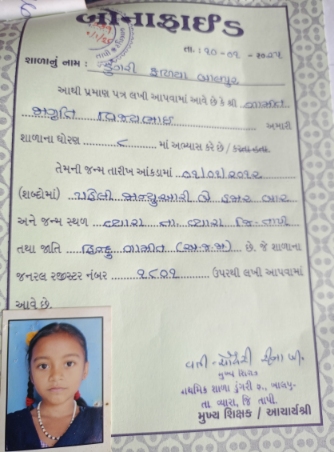 બોનાફાઈડ
તા. : ૧૦ - ૦૧ - ૨૦૨૫
શાળાનું નામ : ડુંગરી ફળિયા બાલપુર
આથી પ્રમાણ પત્ર લખી આપવામાં આવે છે કે શ્રી ગામીત
જાગૃતિ વિજયભાઈ અમારી
શાળાના ધોરણ ૮ માં અભ્યાસ કરે છે /
તેમની જન્મ તારીખ આંકડામાં ૦૧/૦૧/૨૦૧૨
(શબ્દોમાં) પહેલી જાન્યુઆરી બે હજાર બાર
અને જન્મ સ્થળ વ્યારા તા. વ્યારા જિ. તાપી
તથા જાતિ હિન્દુ ગામીત (અ.જ.જા) છે. જે શાળાના
જનરલ રજીસ્ટર નંબર ૧૮૦૧ ઉપરથી લખી આપવામાં
આવે છે.
વતી - ચૌધરી
મુખ્ય શિક્ષક
પ્રાથમિક શાળા ડુંગરી ફ., બાલપુર
તા. વ્યારા, જિ તાપી.
મુખ્ય શિક્ષક / આચાર્યશ્રી